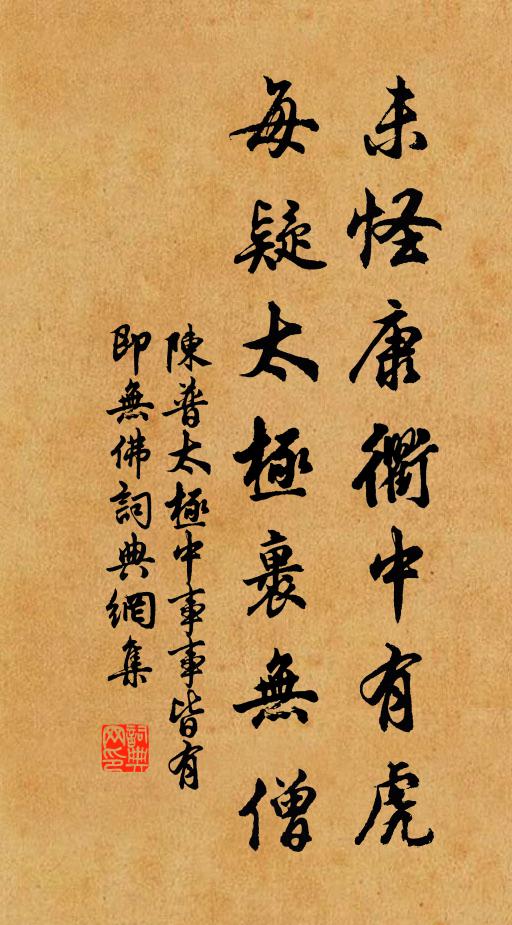 未怪康衢中有虎
每疑太極裏無僧
陳普太極中事事皆有
即無佛詞典網集
詞典網印